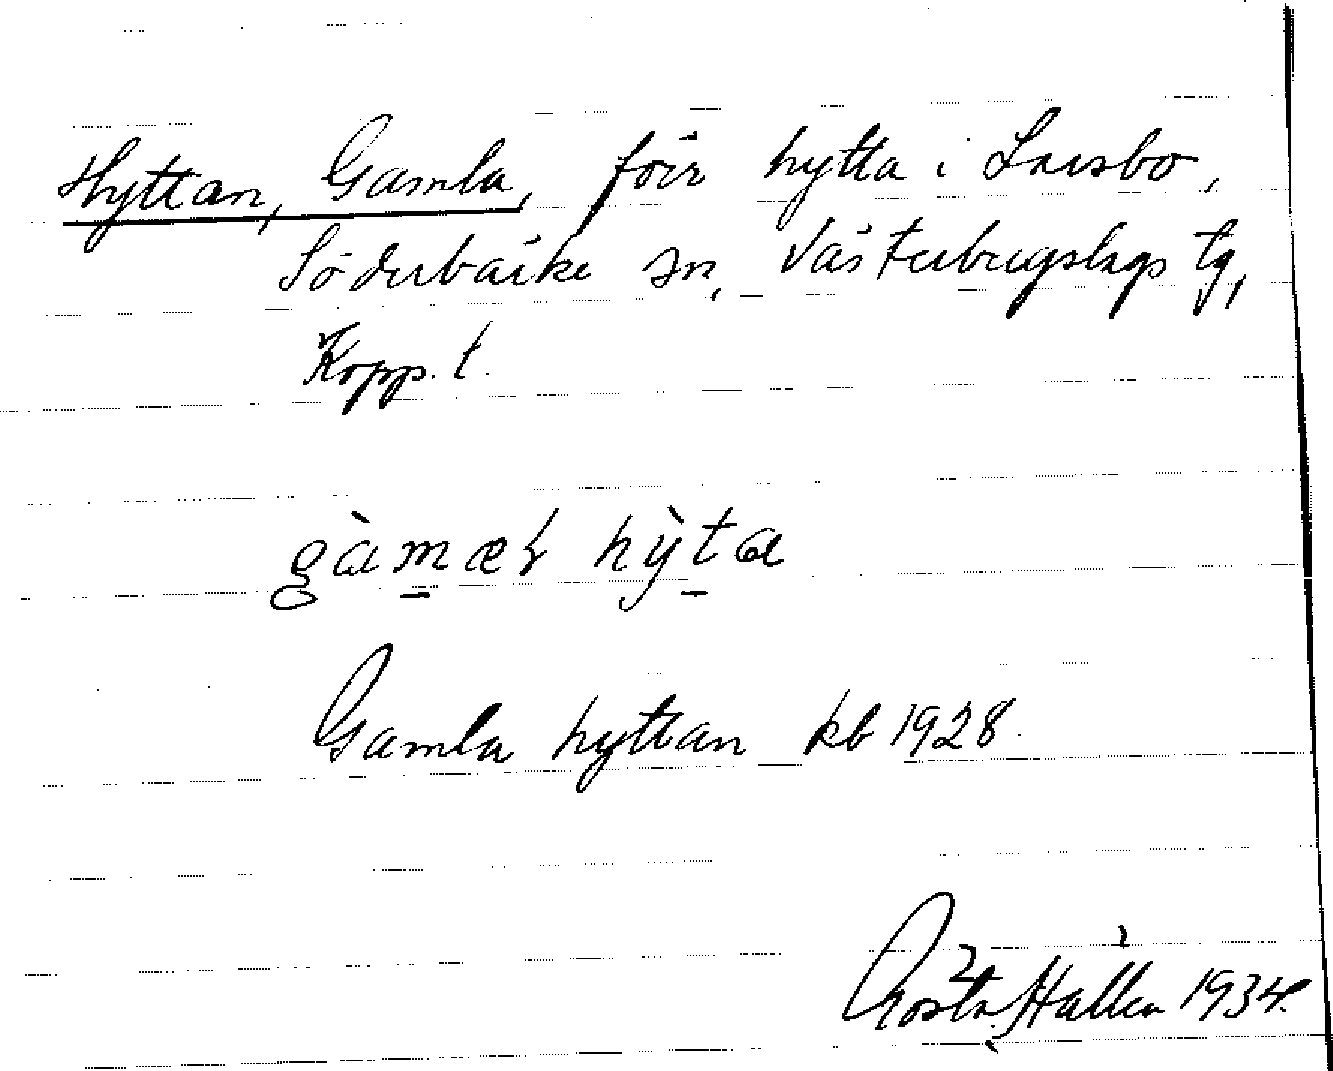 Hyttan, Gamla, förr hytta i Larsbo,
Söderbärke sn, Västerbergslags tg,
Kopp. l.
gàmæł hỳta
Gamla hyttan kb 1928.
Gösta Hallén 1934.